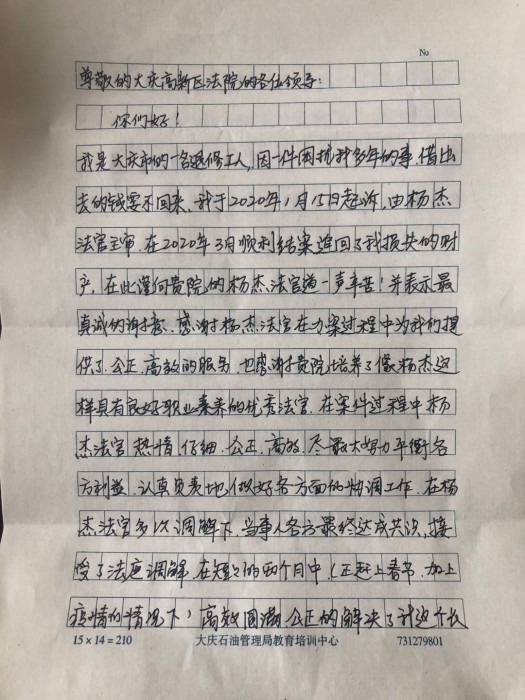 No
尊敬的大庆高新区法院的各位领导：
你们好！
我是大庆市的一名退修工人，因一件困扰我多年的事，借出
去的钱要不回来，我于2020年1月15日起诉，由杨杰
法官主审，在2020年3月顺利结案追回了我损失的财
产，在此谨向贵院的杨杰法官道一声辛苦！并表示最
真诚的谢意，感谢杨杰法官在办案过程中为我们提
供了公正、高效的服务，也感谢贵院培养了像杨杰这
样具有良好职业素养的优秀法官，在案件过程中杨
杰法官热情、仔细、公正、高效、尽最大努力平衡各
方利益，认真负责地做好各方面的协调工作，在杨
杰法官多次调解下，当事人各方最终达成共识，接
受了法庭调解，在短短的两个月中（正赶上春节，加上
疫情的情况下）高效圆满、公正的解决了我这个长
15×14=210 大庆石油管理局教育培训中心 731279801